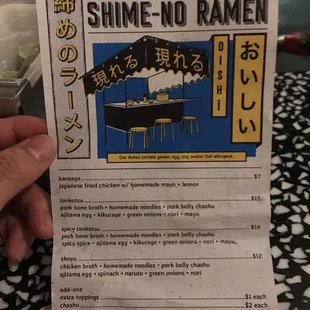 締めのラーメン
SHIME-NO RAMEN
現れる 現れる
OISHI
おいしい
Our dishes contain gluten, egg, soy, and/or fish allergens.
karaage $7
japanese fried chicken w/ homemade mayo • lemon
tonkotsu $13
pork bone broth • homemade noodles • pork belly chashu
ajitama egg • kikurage • green onions • nori • mayu
spicy tonkotsu $14
pork bone broth • homemade noodles • pork belly chashu
spicy spice • ajitama egg • kikurage • green onions • nori • mayu,
shoyu $12
chicken broth • homemade noodles • pork belly chashu
ajitama egg • spinach • naruto • green onions • nori
add-ons
extra toppings $1 each
chashu $2 each